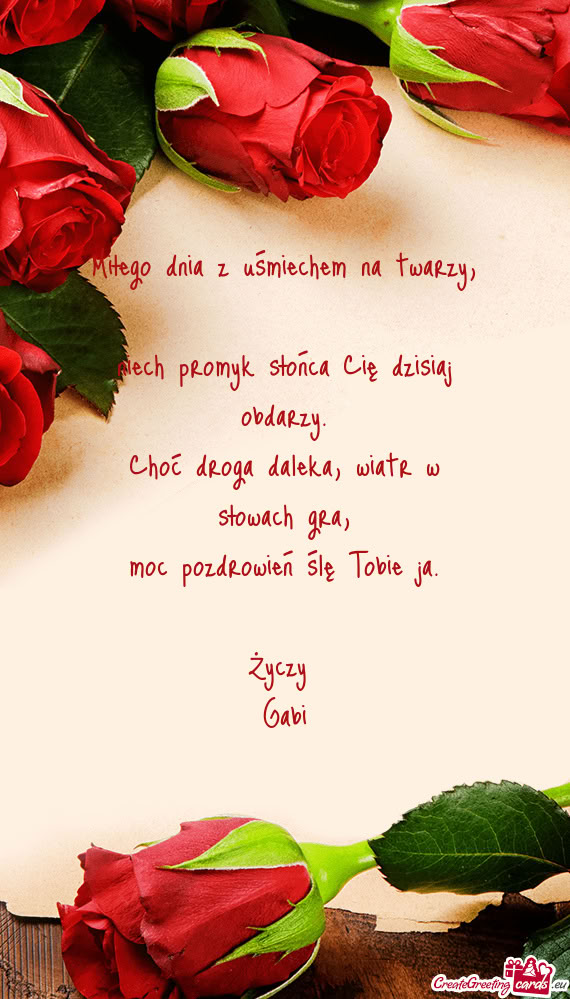 Miłego dnia z uśmiechem na twarzy,
niech promyk słońca Cię dzisiaj
obdarzy.
Choć droga daleka, wiatr w
słowach gra,
moc pozdrowień ślę Tobie ja.
Życzy
Gabi
CreateGreetingcards.eu